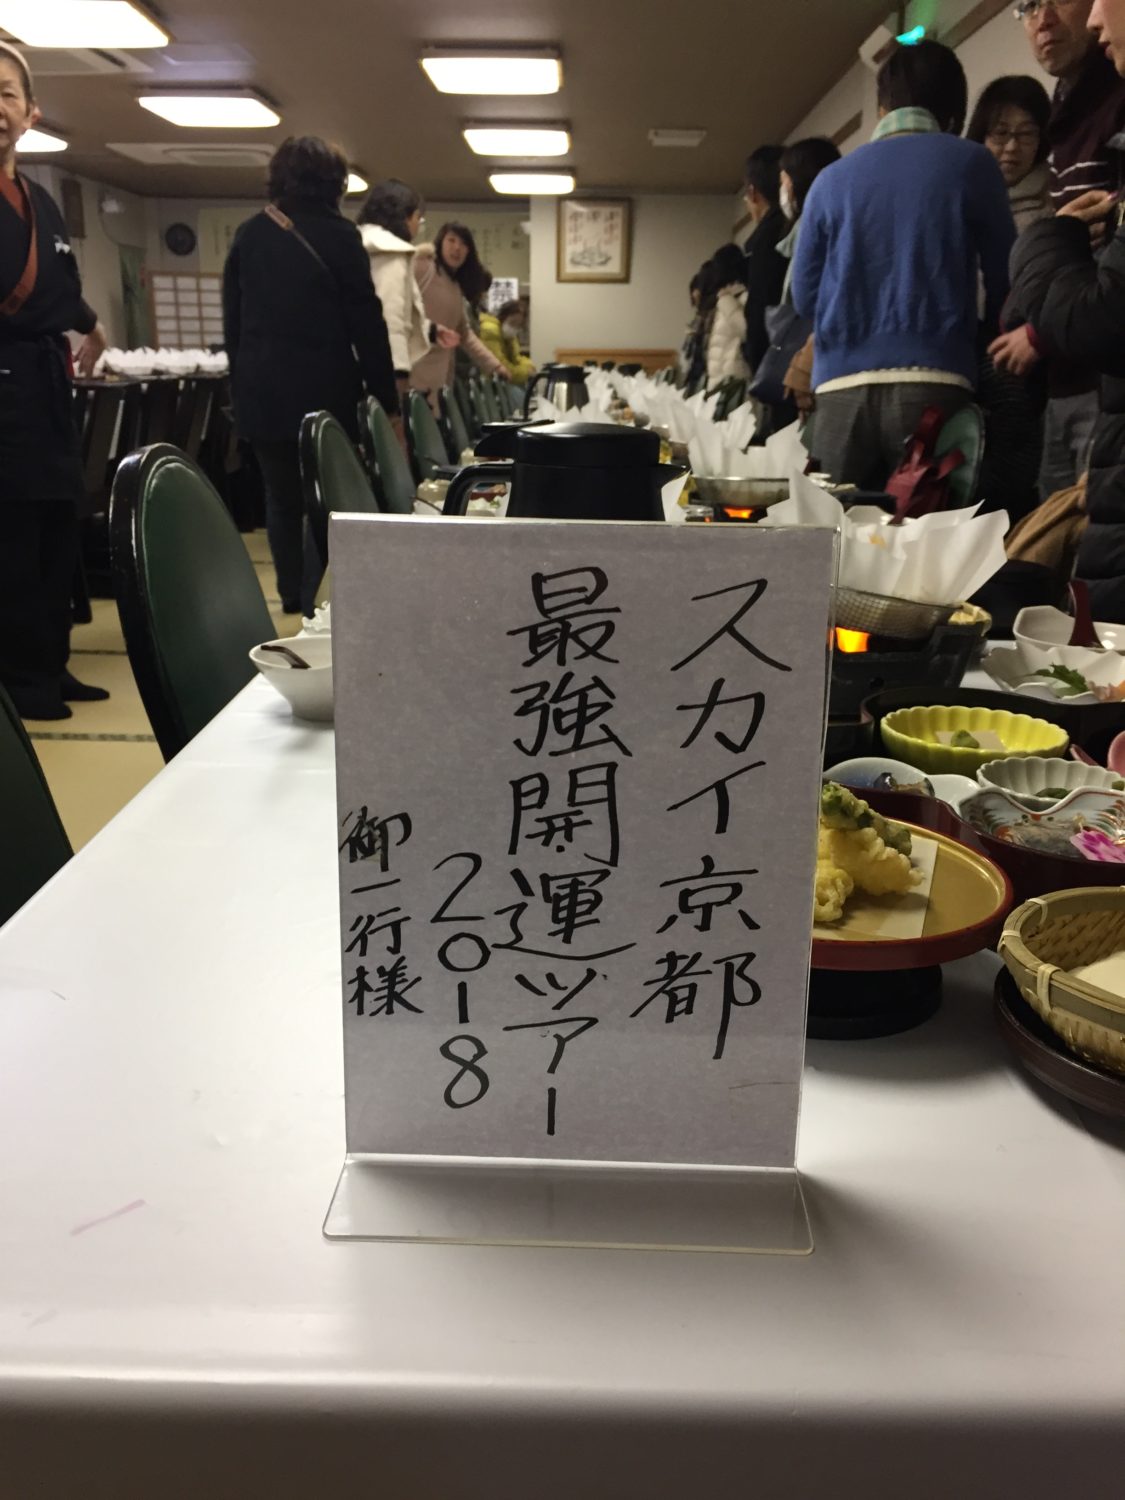 スカイ京都
最強開運ツアー
2018
御一行様
禁